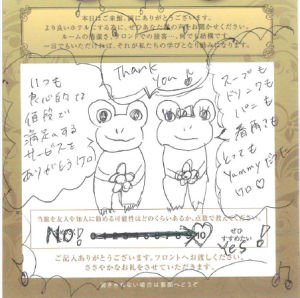 本日はご来館、誠にありがとうございます。
より良いホテルにする為に、ぜひあなた様の声をお聞かせください。
ルームの清潔さ、フロントでの接客…、何でも結構です。
一言でもいただければ、それが私たちの学びとなり励みになります。
Thank
You
いつも
良心的な
値段で
満足する
サービスを
ありがとうケロ
スープも
ドリンクも
パンも
着雨でも
とっても
Yummyだった
ケロ♡
当館を友人や知人に勧める可能性はどのくらいあるか、点数で教えてください。
NO!
10
ぜひ
すすめたい
Yes!
ご記入ありがとうございます。フロントへお渡しください。
ささやかなお礼をさせていただきます。